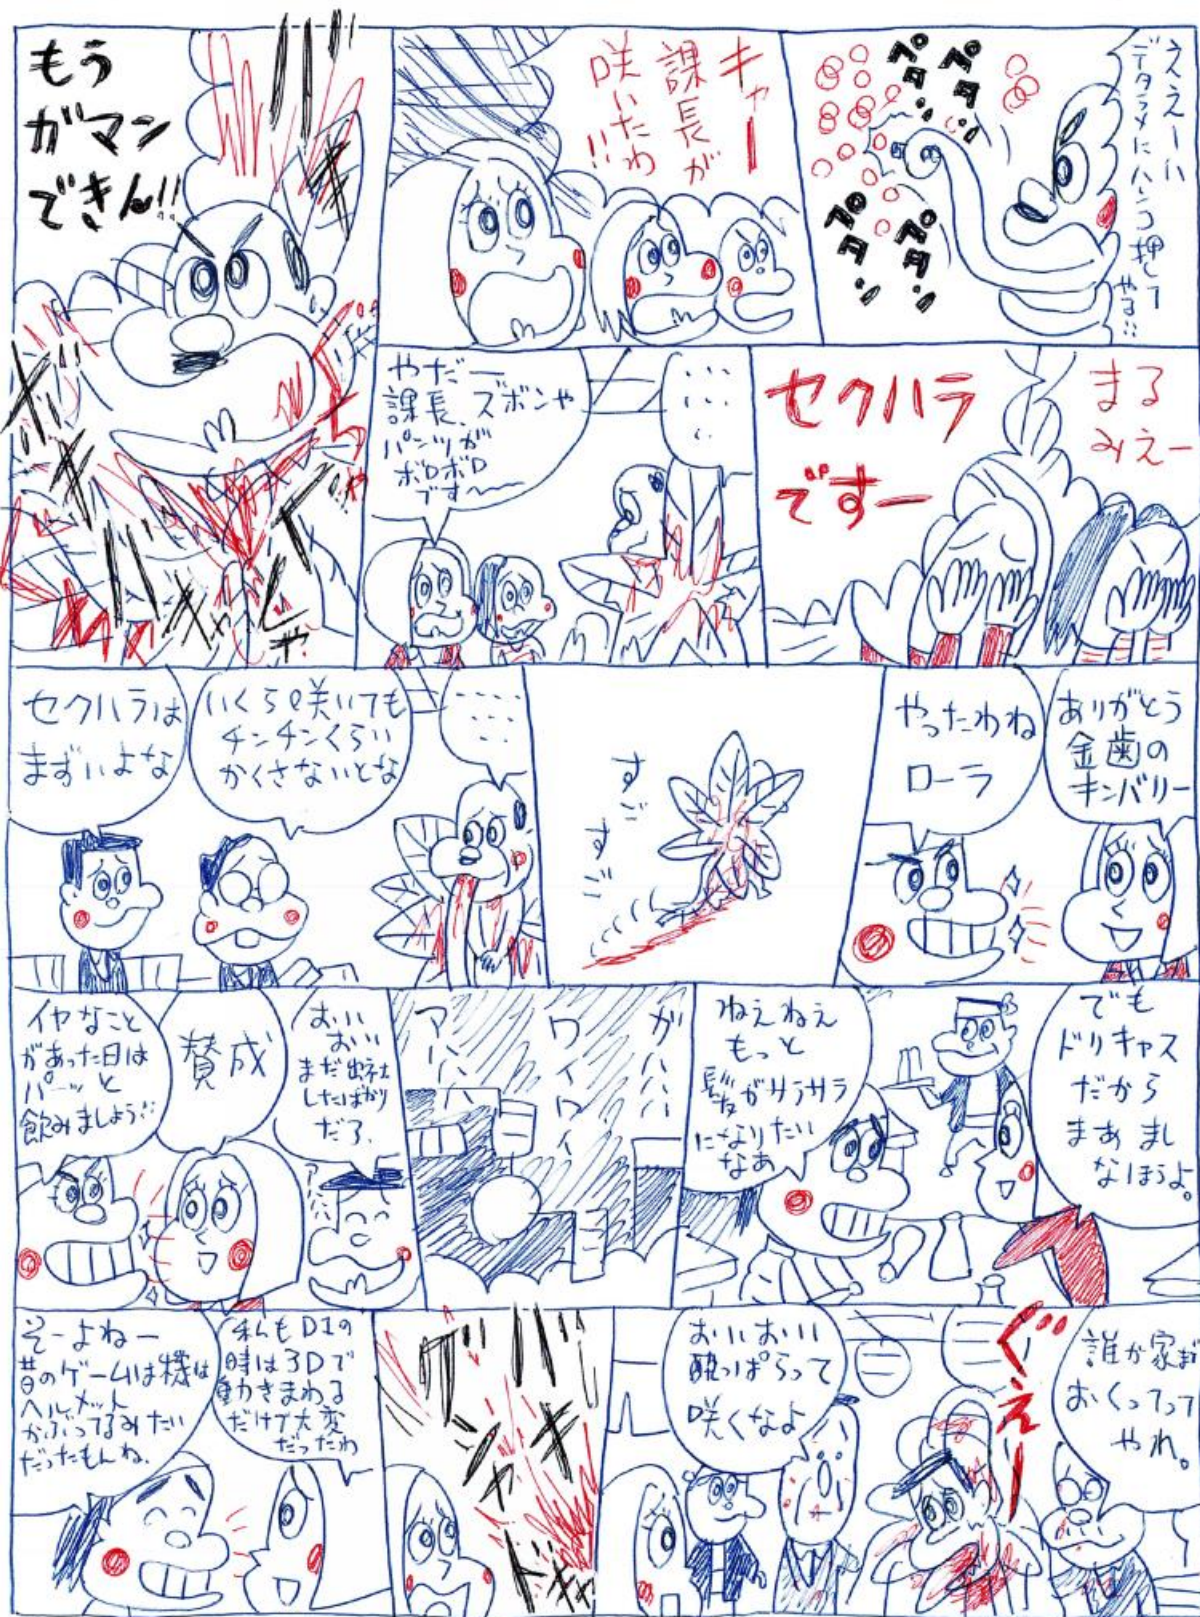 ええーい
デタラメにハンコ押して
やる!!
ペタ!
ペタ!
ペタ!
ペタ!
キャー
課長が
咲いたわ
!!
もう
ガマン
できん!!
まる
みえー
セクハラ
ですー
・・・
・・・
やだー
課長、ズボンや
パンツが
ボロボロ
です〜〜
ありがとう
金歯の
キンバリー
やったわね
ローラ
すご
すご
いくら咲いても
チンチンくらい
かくさないとな
セクハラは
まずいよな
でも
ドリキャス
だから
まあまし
なほうよ。
ねえねえ
もっと
髪がサラサラ
になりたい
なあ
ガハハハ
ワイワイ
アハハハ
おい
おい
まだ出社
したばかり
だろ、
アハハ
賛成
イヤなこと
があった日は
パーッと
飲みましょう!!
誰か家まで
おくってって
やれ。
ぐえーー
おいおい
酔っぱらって
咲くなよ
私もD1の
時は3Dで
動きまわる
だけで大変
だったわ
そーよねー
昔のゲーム機は
ヘルメット
かぶってるみたい
だったもんね、